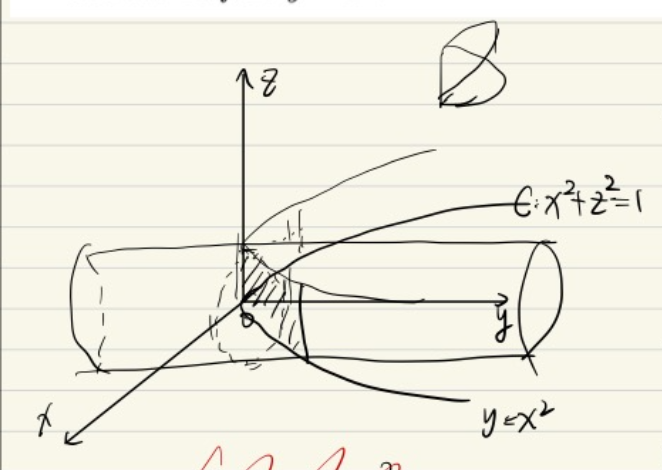 z
C: x²+z²=1
0
y
x
y=x²